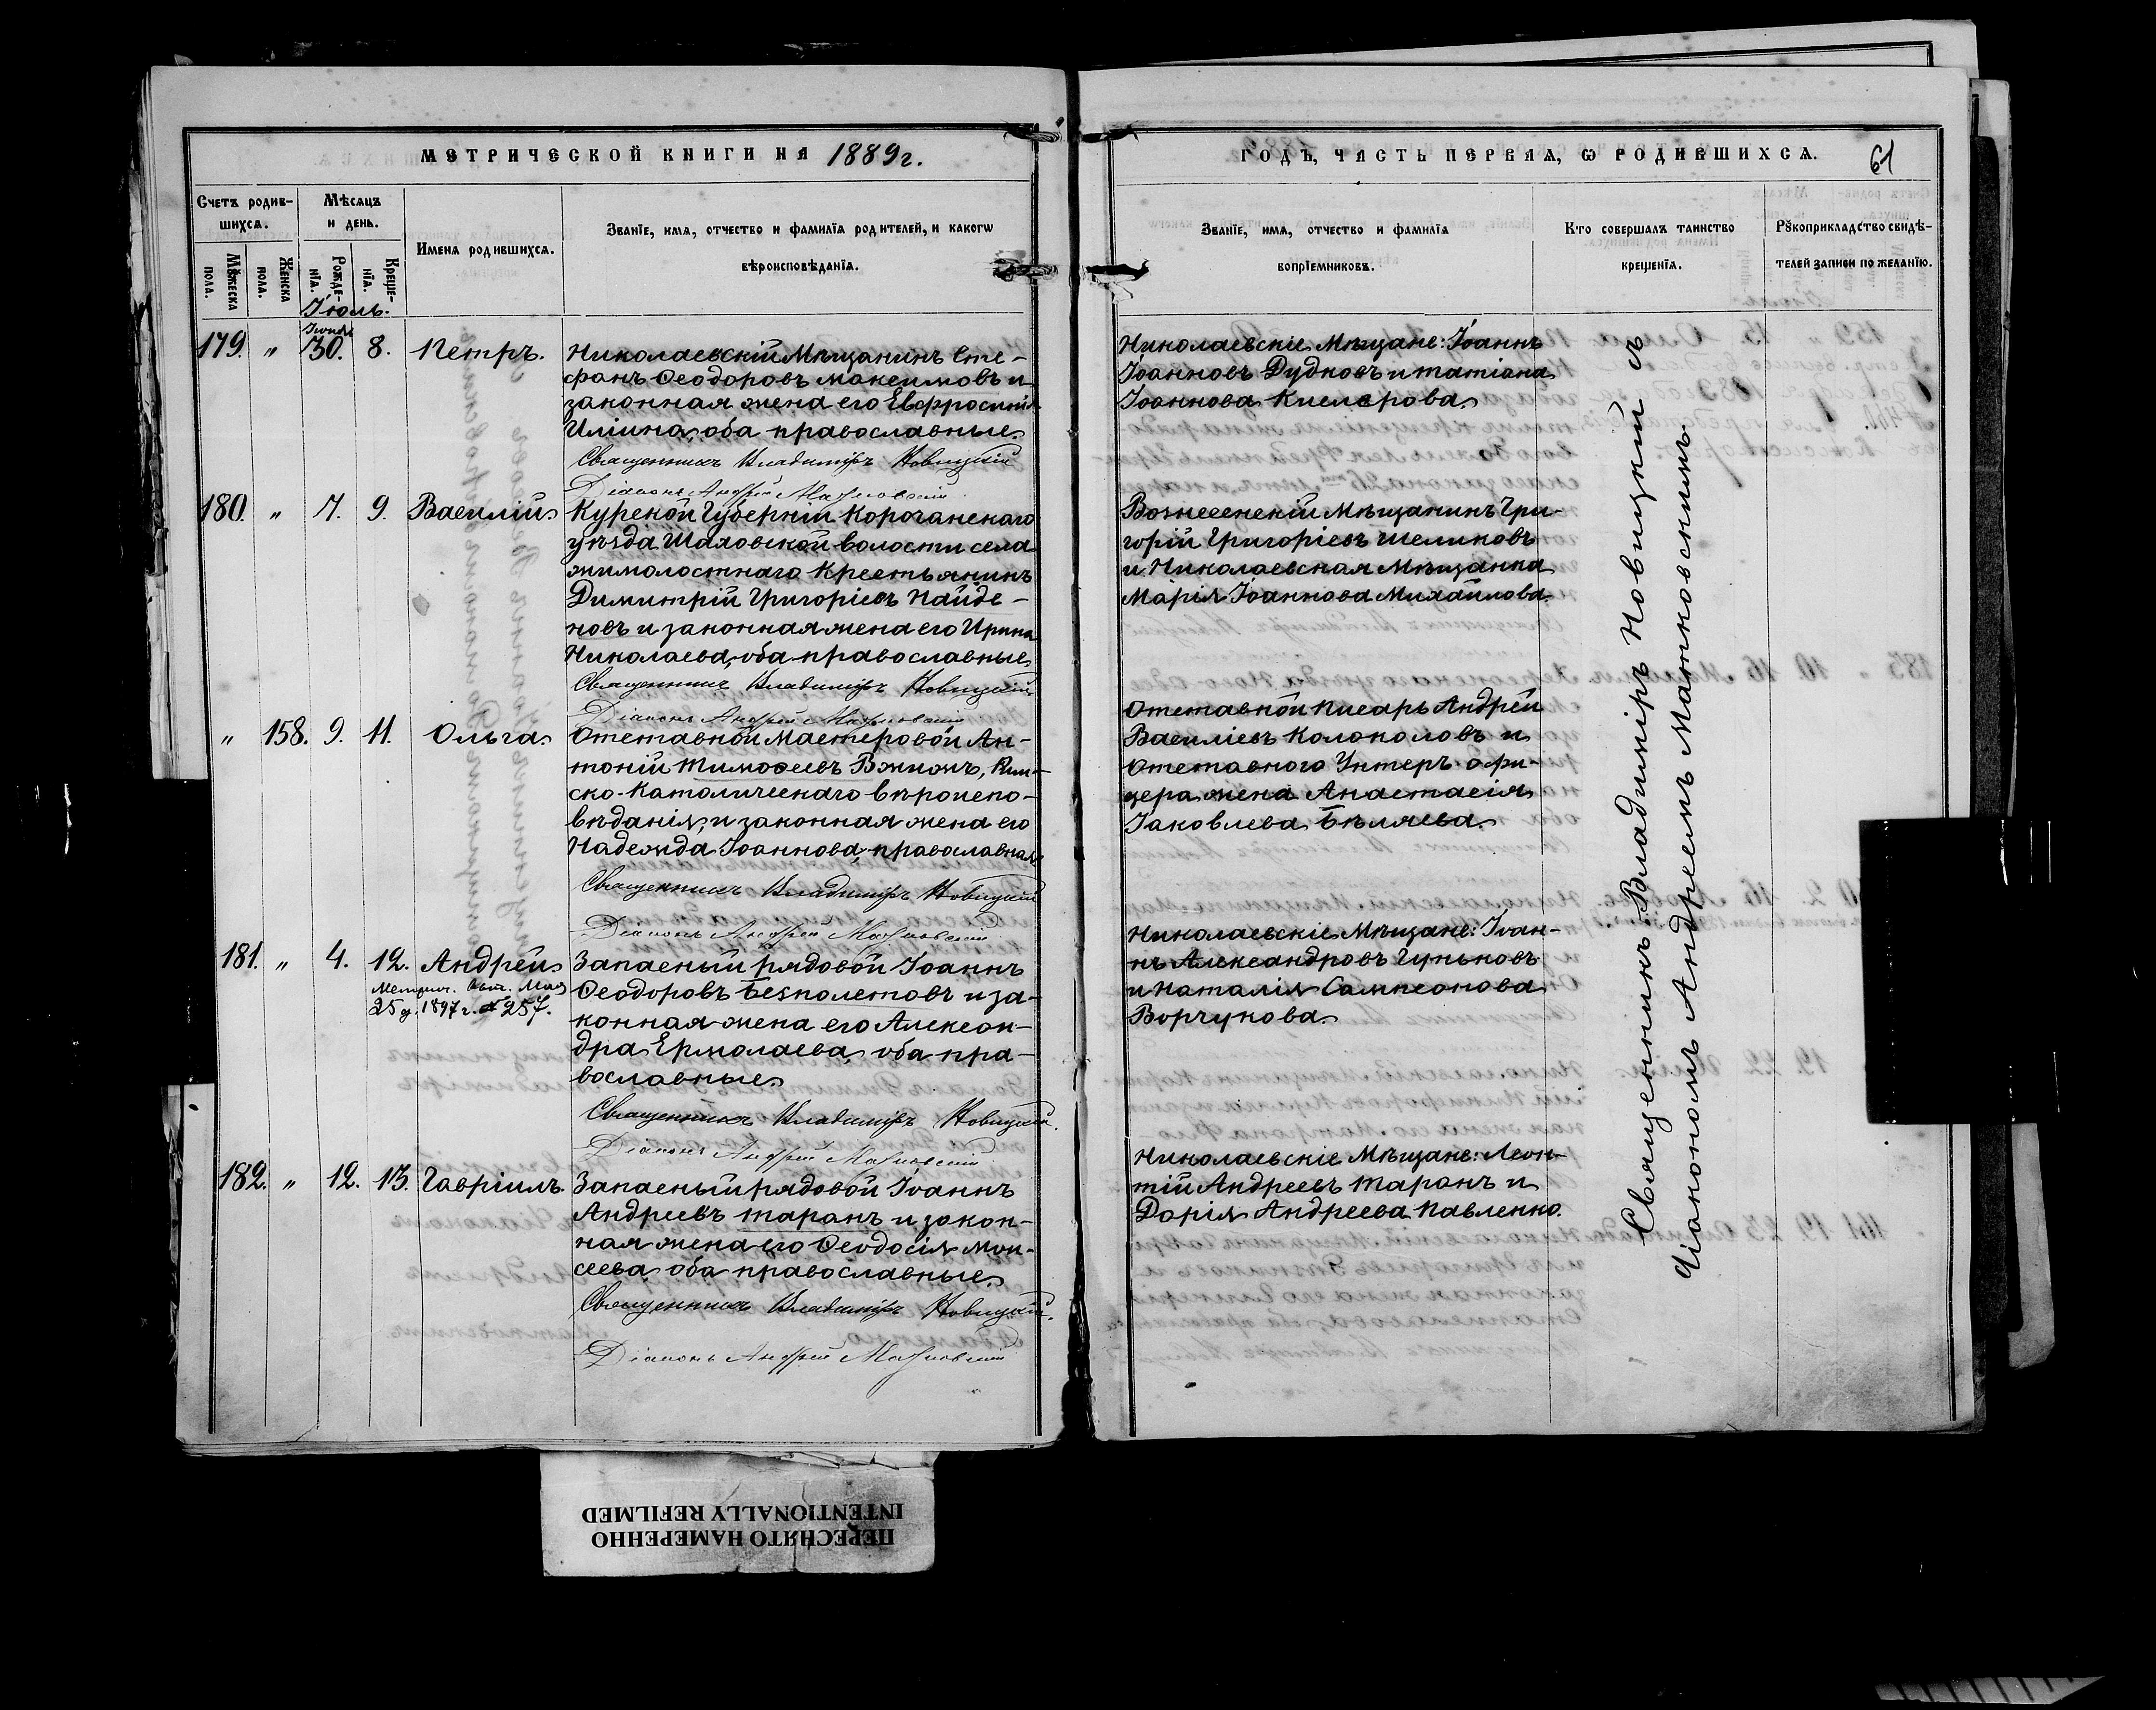 МЕТРИЧЕСКОЙ КНИГИ НА 1889 г.
Счетъ родив-
шихся.
Мѣсяцъ
и день.
Имена родившихся.
Званїе, имя, отчество и фамилїя родителей, и какогѡ
вѣроисповѣданїя.
Мꙋжеска
пола.
Женска
пола.
Рожде-
нїя.
Креще-
нїя.
Іюль.
179. " Іюня 30. 8. Петръ.
Николаевскій Мѣщанинъ Сте-
фанъ Ѳеодоровъ Максимовъ и
законная жена его Евфросинія
Иліина, оба православные.
Священникъ Владиміръ Новицкій
Діаконъ Андрей
180. " 7. 9. Василій
Курской Губерніи Корочанскаго
уѣзда Шаховской волости села
Жимолостнаго Крестьянинъ
Димитрій Григоріевъ Найде-
новъ и законная жена его Ирина
Николаева, оба православные
Священникъ Владиміръ Новицкій
Діаконъ Андрей
" 158. 9. 11. Ольга.
Отставной Мастеровой Ан-
тоній Тимоѳеевъ Рим-
ско-Католическаго вѣроиспо-
вѣданія, и законная жена его
Надежда Іоаннова, православная
Священникъ Владиміръ Новицкій
Діаконъ Андрей
181. " 4. 12. Андрей
Метрич. Свид. Мая
25 д. 1897 г. № 257.
Запасный рядовой Іоаннъ
Ѳеодоровъ Безполетовъ и за-
конная жена его Алексан-
дра Ермолаева, оба пра-
вославные.
Священникъ Владиміръ Новицкій.
Діаконъ Андрей
182. " 12. 13. Гавріилъ.
Запасный рядовой Іоаннъ
Андреевъ Таранъ и закон-
ная жена его Ѳеодосія Мои-
сеева, оба православные.
Священникъ Владиміръ Новицкій.
Діаконъ Андрей
ГОДЪ, ЧАСТЬ ПЕРВАЯ, Ѡ РОДИВШИХСЯ. 61
Званїе, имя, отчество и фамилїя
воприемниковъ.
Кто совершалъ таинство
крещенїя.
Рꙋкоприкладство свидѣ-
телей записи по желанїю.
Николаевскіе Мѣщане: Іоаннъ
Іоанновъ Дудковъ и Татіана
Іоаннова Киселерова.
Вознесенскій Мѣщанинъ Гри-
горій Григоріевъ Шеликовъ
и Николаевская Мѣщанка
Марія Іоаннова Михайлова.
Отставной Писарь Андрей
Василіевъ Колоколовъ и
Отставного Унтеръ-офи-
цера жена Анастасія
Іаковлева Бѣляева.
Николаевскіе Мѣщане: Іоан-
нъ Александровъ Гуньковъ
и Наталія Сампсонова
Ворчукова.
Николаевскіе Мѣщане: Леон-
тій Андреевъ Таранъ и
Дарія Андреева Павленко.
Священникъ Владиміръ Новицкій съ
Діакономъ Андреемъ Матковскимъ.
ПЕРЕСНЯТО НАМЕРЕННО
INTENTIONALLY REFILMED